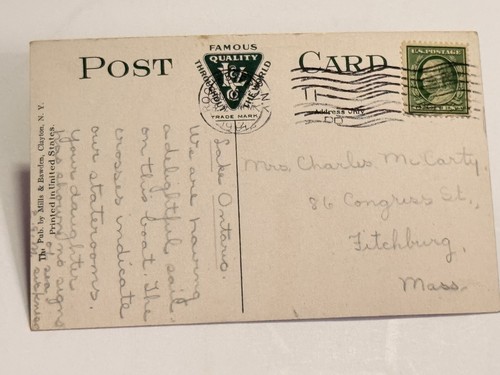 POST CARD
FAMOUS
QUALITY
THROUGHOUT THE WORLD
TRADE MARK
U.S. POSTAGE
Address Only
Lake Ontario.
We are having
a delightful sail
on this boat. The
crosses indicate
our staterooms.
Your daughter
has shown no signs
of sea
sickness
Mrs. Charles McCarty,
86 Congress St.,
Fitchburg,
Mass.
Pub. by Mills & Bawden, Clayton, N. Y.
Printed in United States.